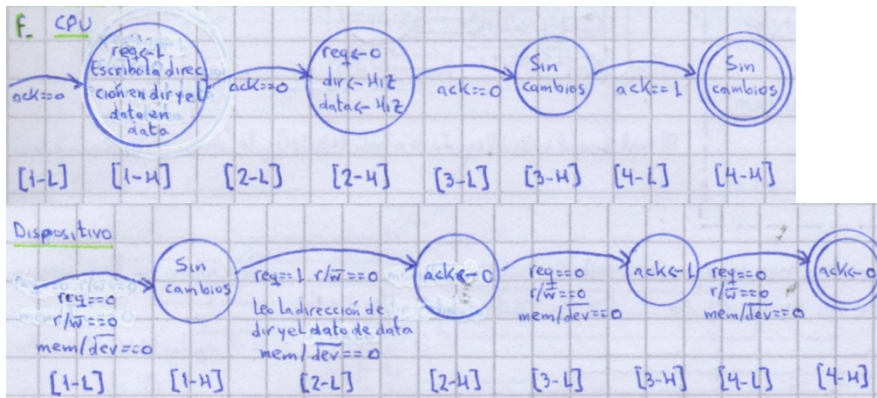 F. CPU
ack==0
req<-1
Escribo la direc
ción en dir y el
dato en
data
ack==0
req<-0
dir<-HiZ
data<-HiZ
ack==0
Sin
cambios
ack==1
Sin
cambios
[1-L] [1-H] [2-L] [2-H] [3-L] [3-H] [4-L] [4-H]
Dispositivo
req==0
r/w̅==0
mem/d̅e̅v̅==0
Sin
cambios
req==1 r/w̅==0
Leo la dirección de
dir y el dato de data
mem/d̅e̅v̅==0
ack<-0
req==0
r/w̅==0
mem/d̅e̅v̅==0
ack<-1
req==0
r/w̅==0
mem/d̅e̅v̅==0
ack<-0
[1-L] [1-H] [2-L] [2-H] [3-L] [3-H] [4-L] [4-H]